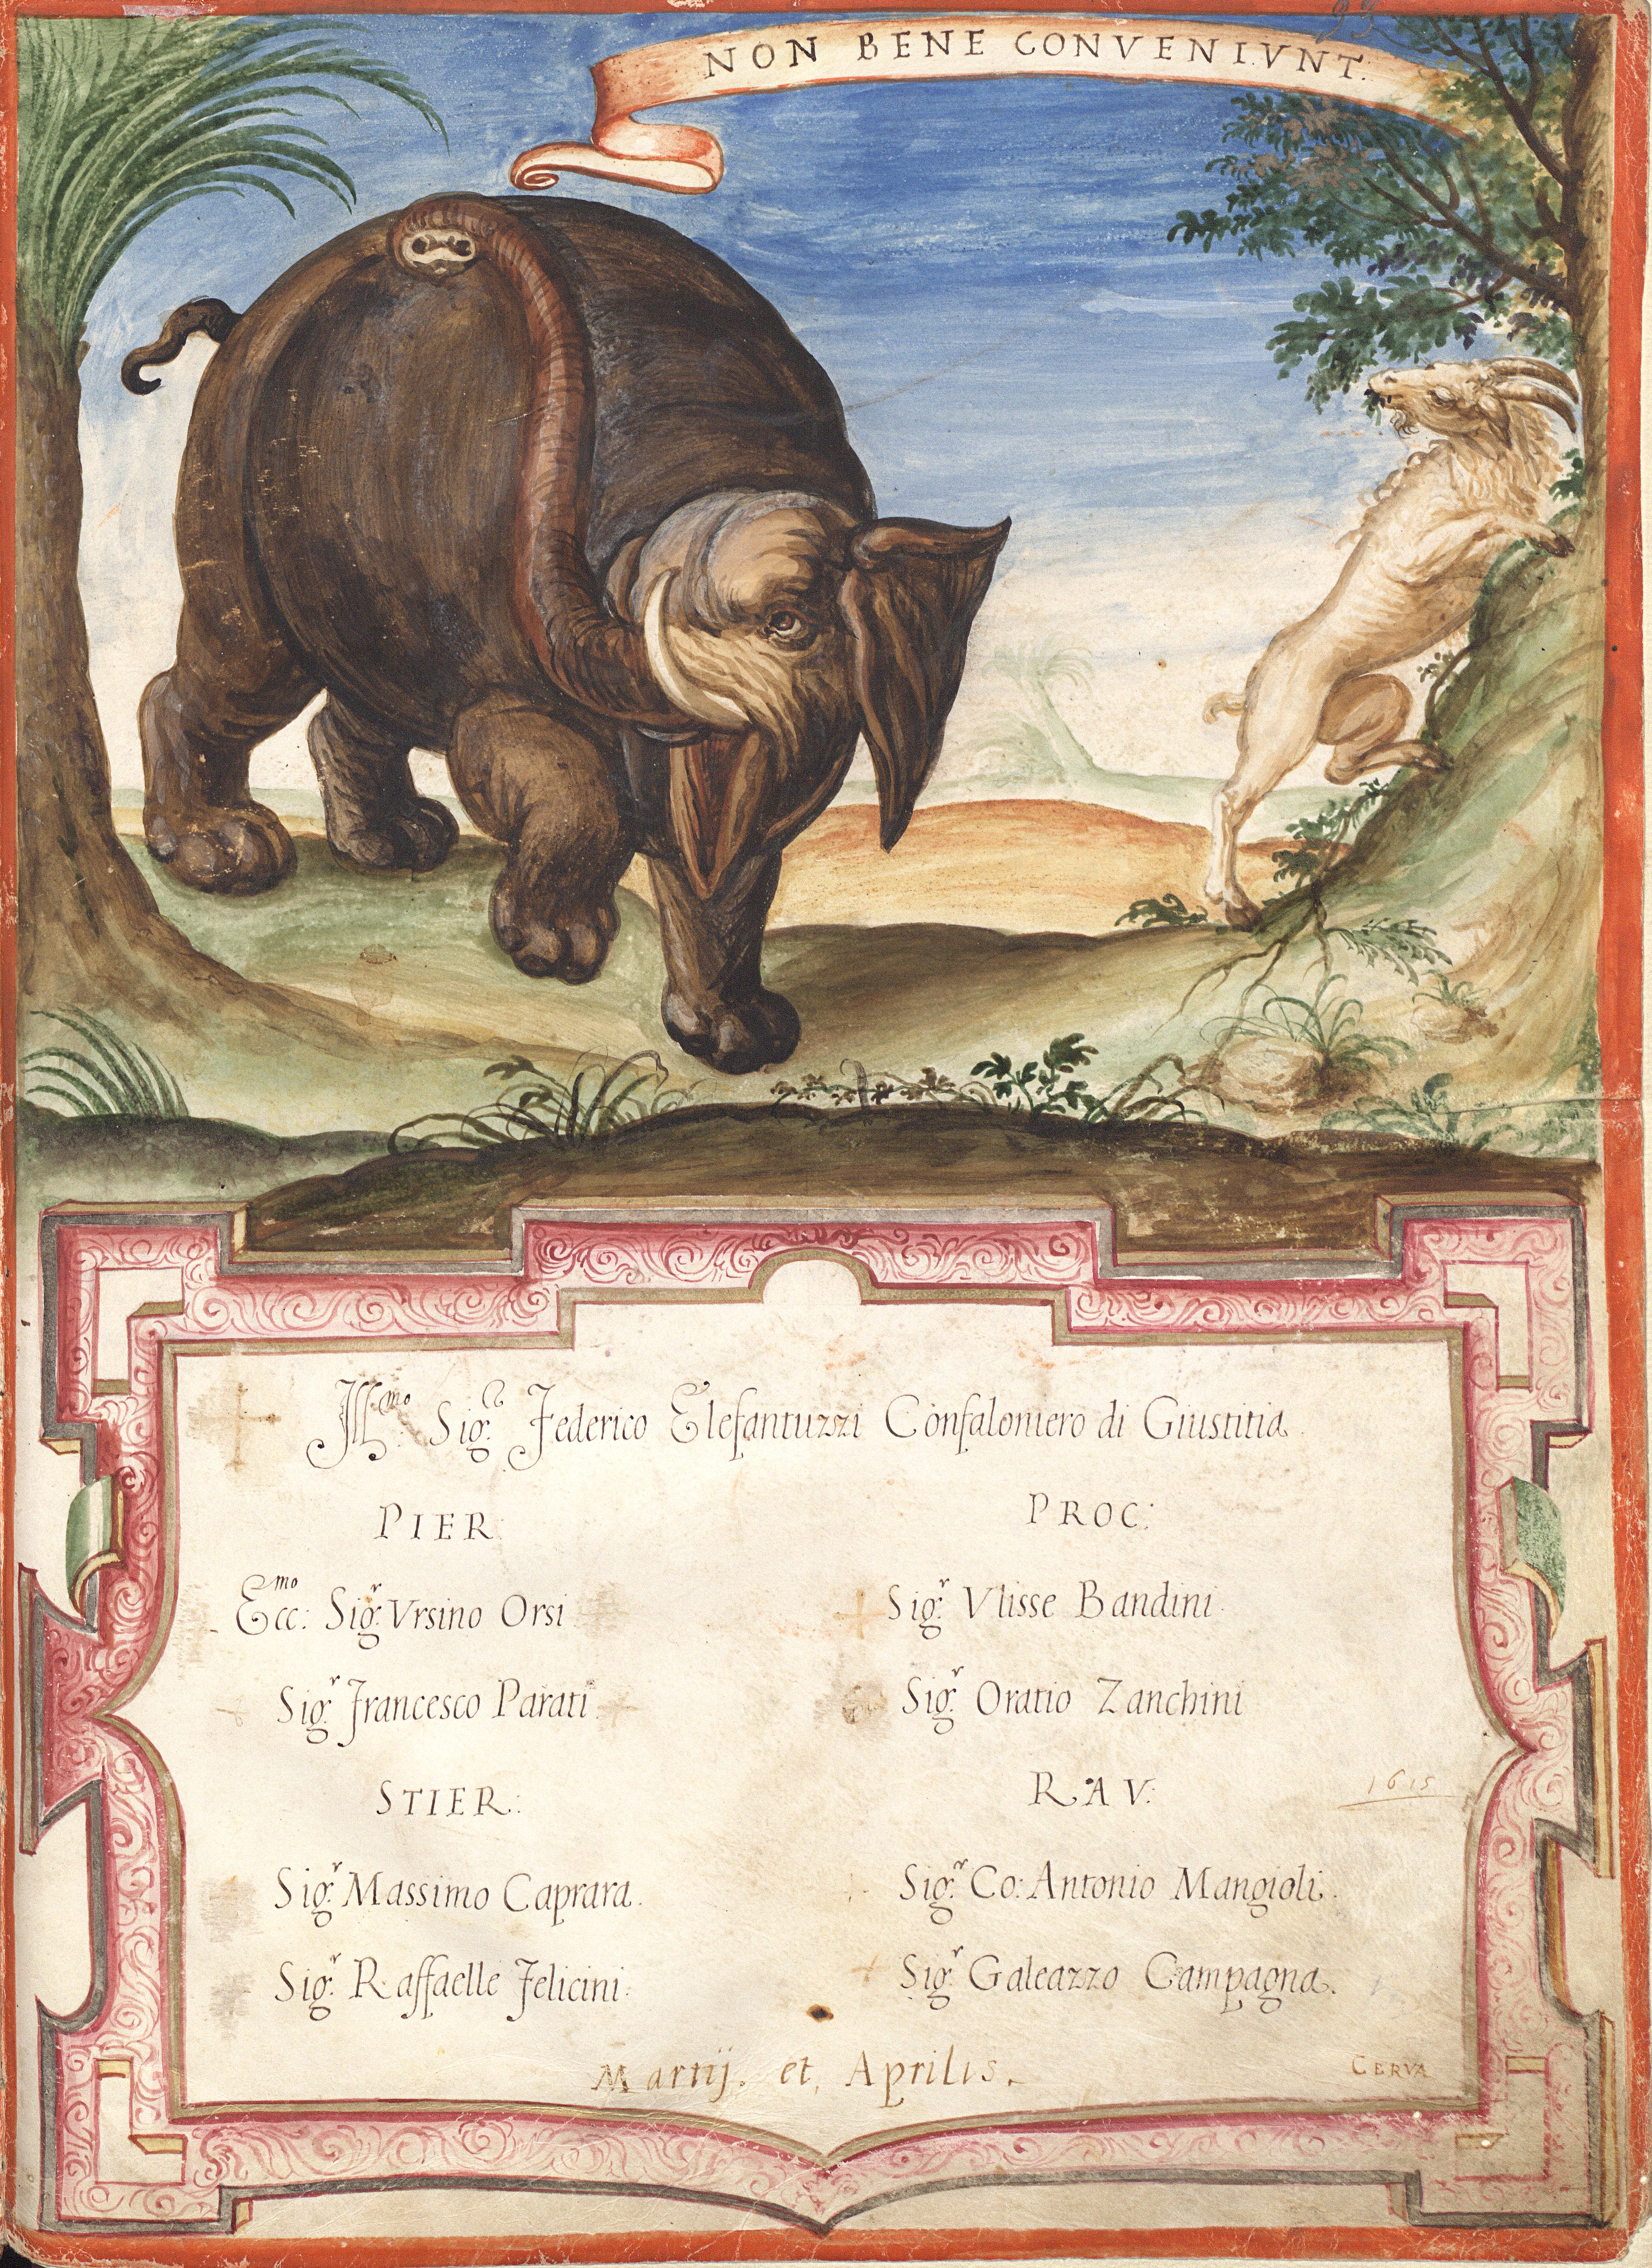 93
NON BENE CONVENIVNT.
Ill.mo Sig.r Federico Elefantuzzi Confaloniero di Giustitia.
PIER
Ecc:mo Sig.r Vrsino Orsi
Sig.r Francesco Parati
STIER:
Sig.r Massimo Caprara.
Sig.r Raffaelle Felicini.
PROC:
Sig.r Vlisse Bandini.
Sig.r Oratio Zanchini
RAV:
1615
Sig.r Co: Antonio Mangioli.
Sig.r Galeazzo Campagna.
Martij. et, Aprilis.
CERVA